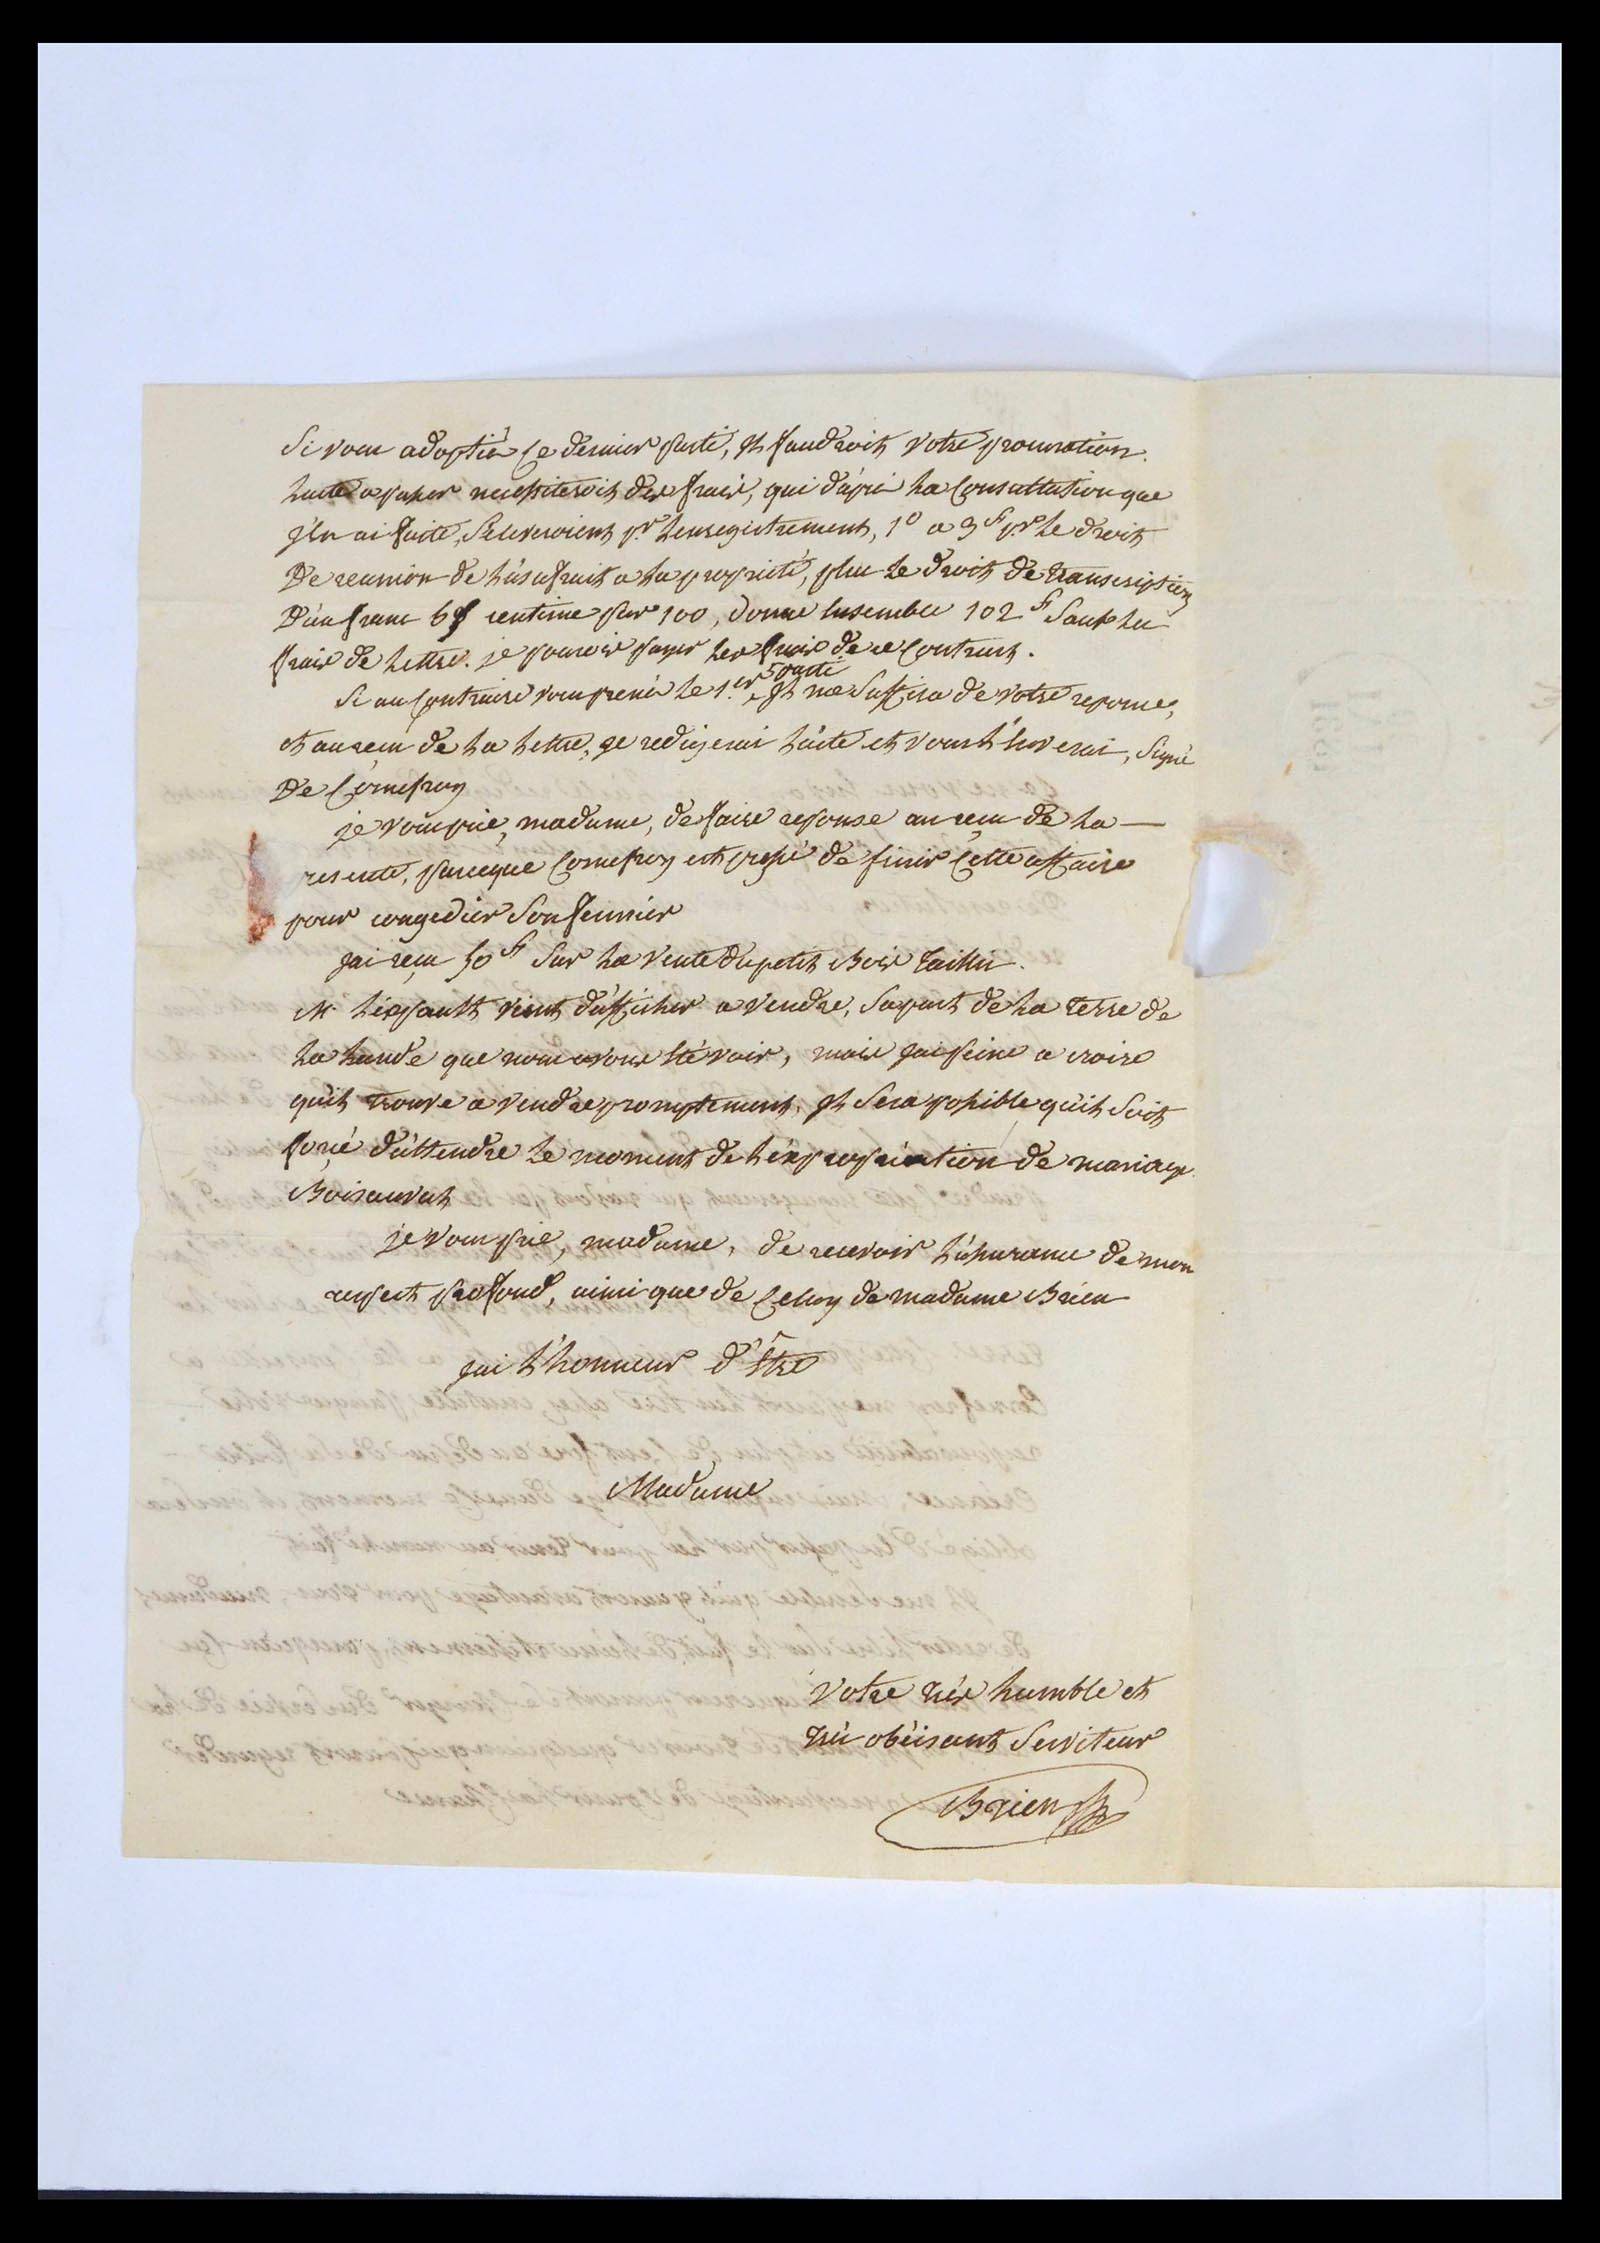 Si vous adoptiés ce dernier parti, il faudroit votre procuration.
l'acte a passer necessiteroit des frais, qui d'après la consultation que
j'en ai faite, s'eleveroient pr l'enregistrement, 1° a 3 f pr le droit
De reunion de l'usufruit a la propriété, plus le droit de transcription
D'un franc 65 centime par 100, donne ensemble 102 f sauf les
frais de lettre. je pourois payer les frais de ce contrat.
Si au contraire vous prenés le 1.er parti il me suffira de votre reponse,
et au reçu de la lettre, je redigerai l'acte et vous l'enverai, signé
De Cornefroy
je vous prie, madame, de faire reponse au reçu de la
presente, parceque Cornefroy est pressé de finir cette affaire
pour congedier son fermier
j'ai reçu 50 f sur la vente du petit Bois taillis.
M. vient d'afficher a vendre, sa part de la terre de
la lande que nous avons été voir, mais j'ai peine a croire
qu'il trouve a vendre promptement, il sera possible qu'il soit
forcé d'attendre le moment de l'expropriation de mariage
Boisauvat
je vous prie, madame, de recevoir l'assurance de mon
respect profond, ainsi que de celuy de madame Brien
j'ai l'honneur d'être
Madame
Votre très humble et
très obéisant Serviteur
Brien